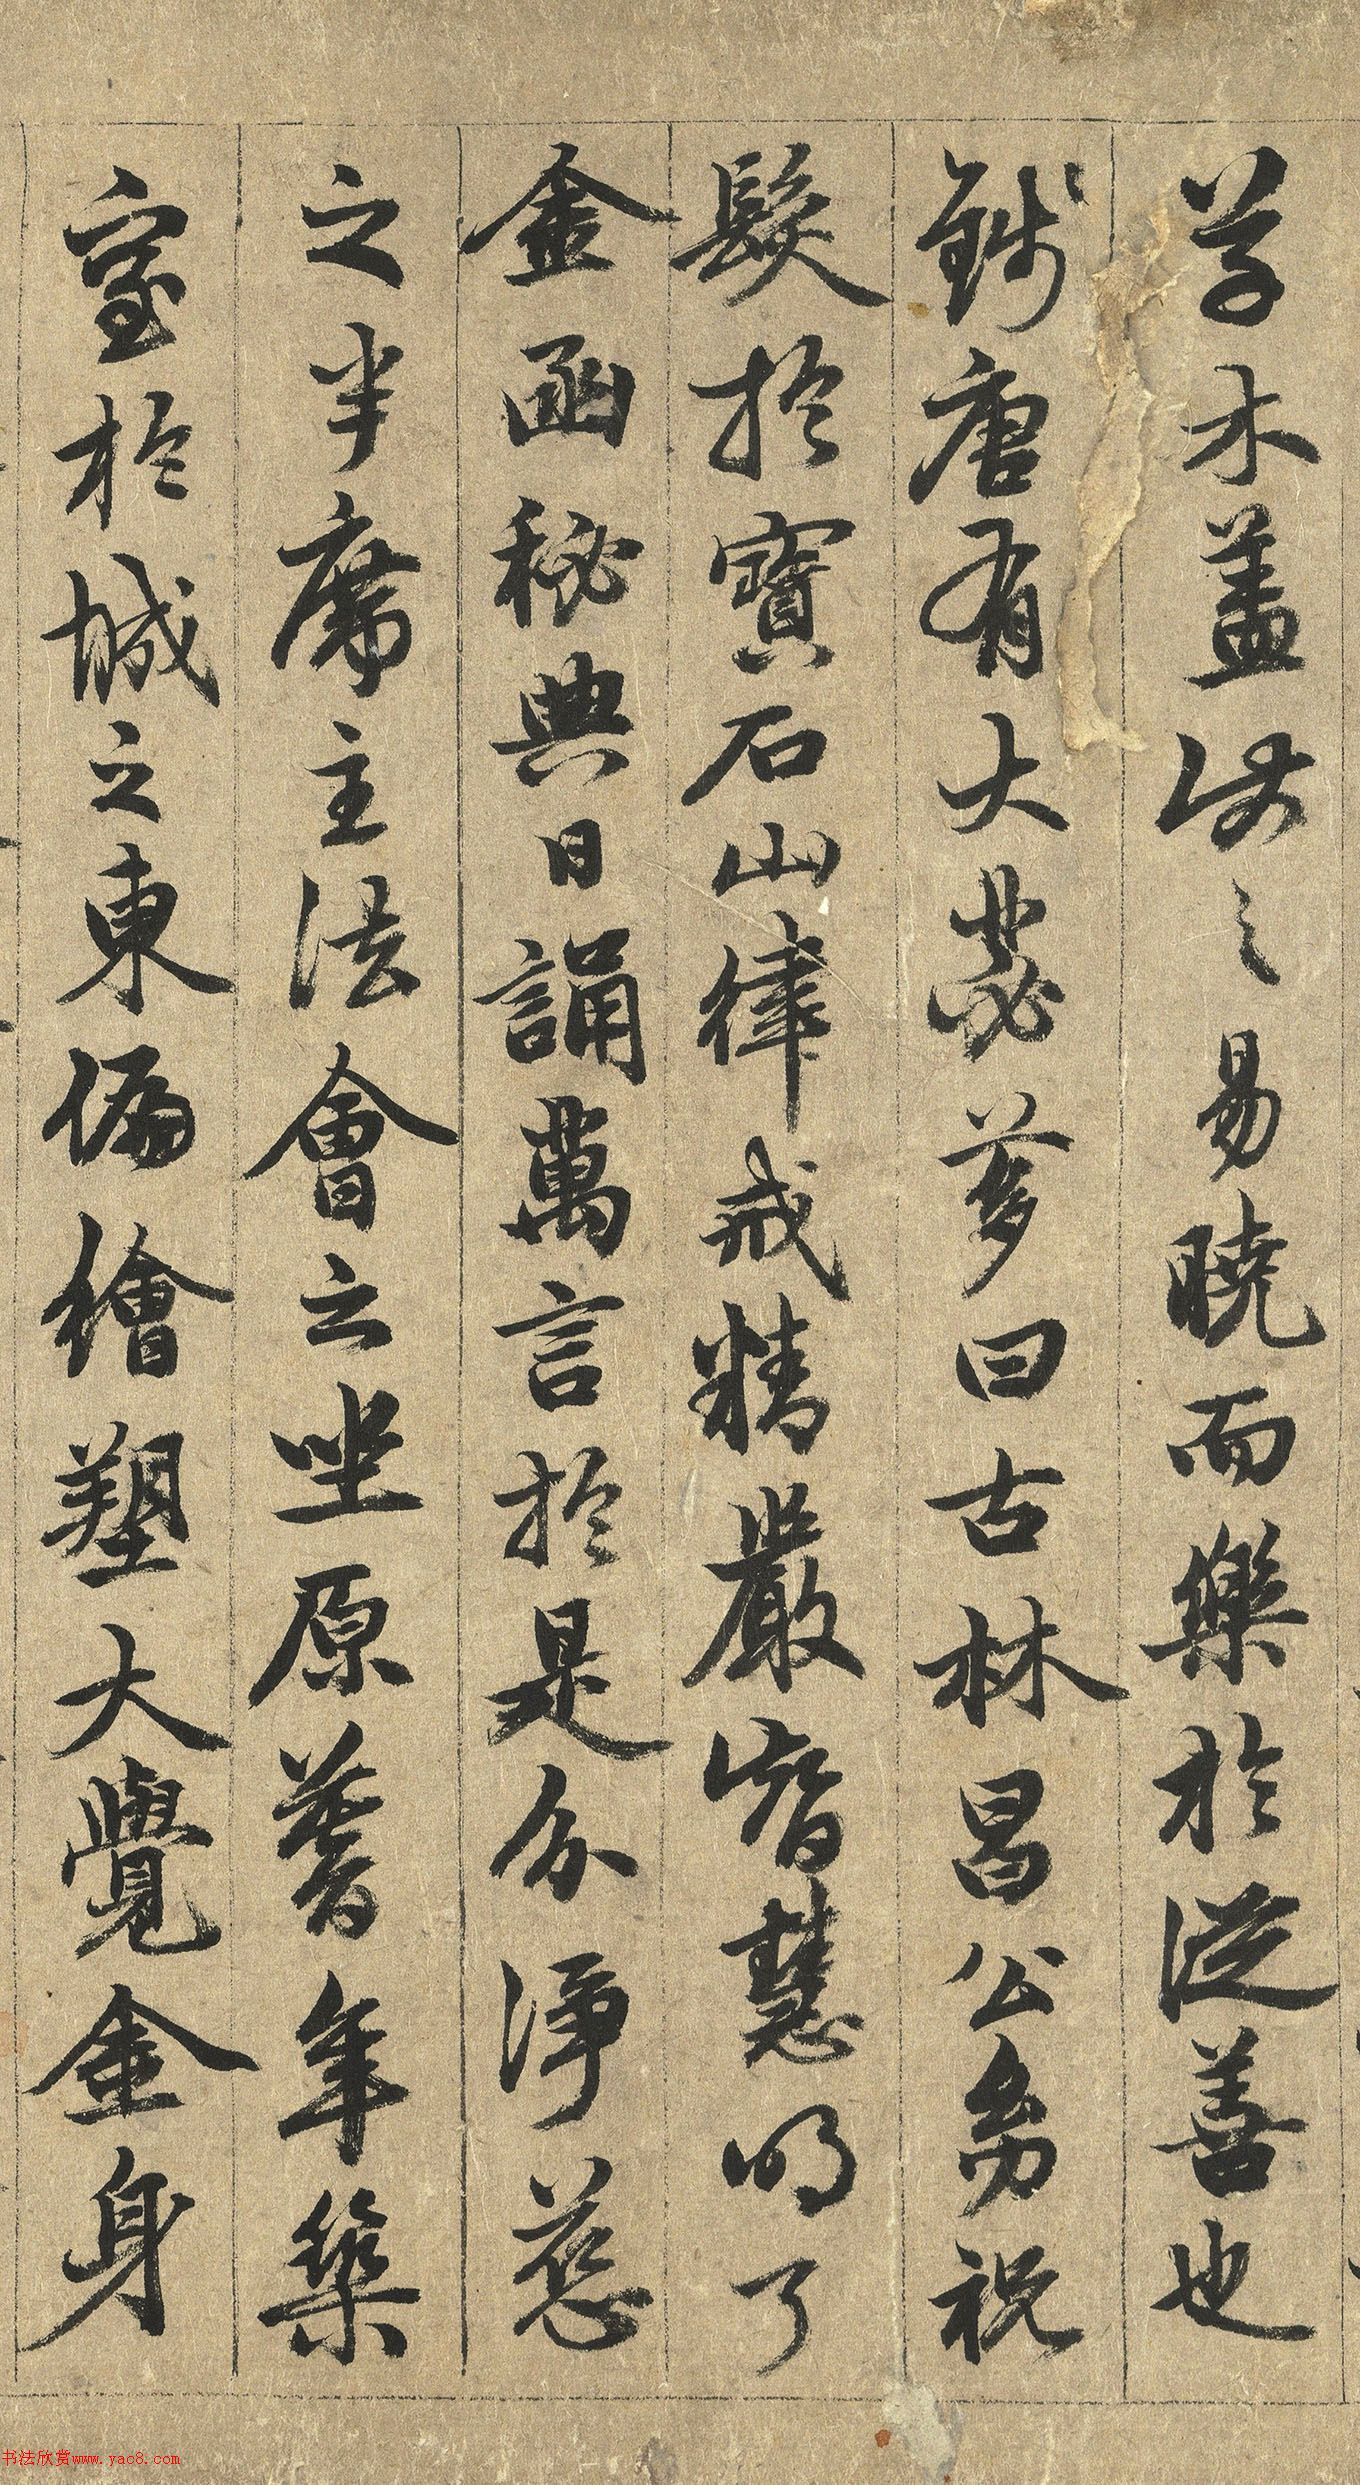 草木蓋欲人之易曉而樂於從善也
錢唐有大苾芻曰古林昌公幼祝
髮於寶石山律戒精嚴智慧明了
金函秘典日誦萬言於是分淨慈
之半席主法會之坐原蓍年築
室於城之東偏繪塑大覺金身
书法欣赏www.yac8.com